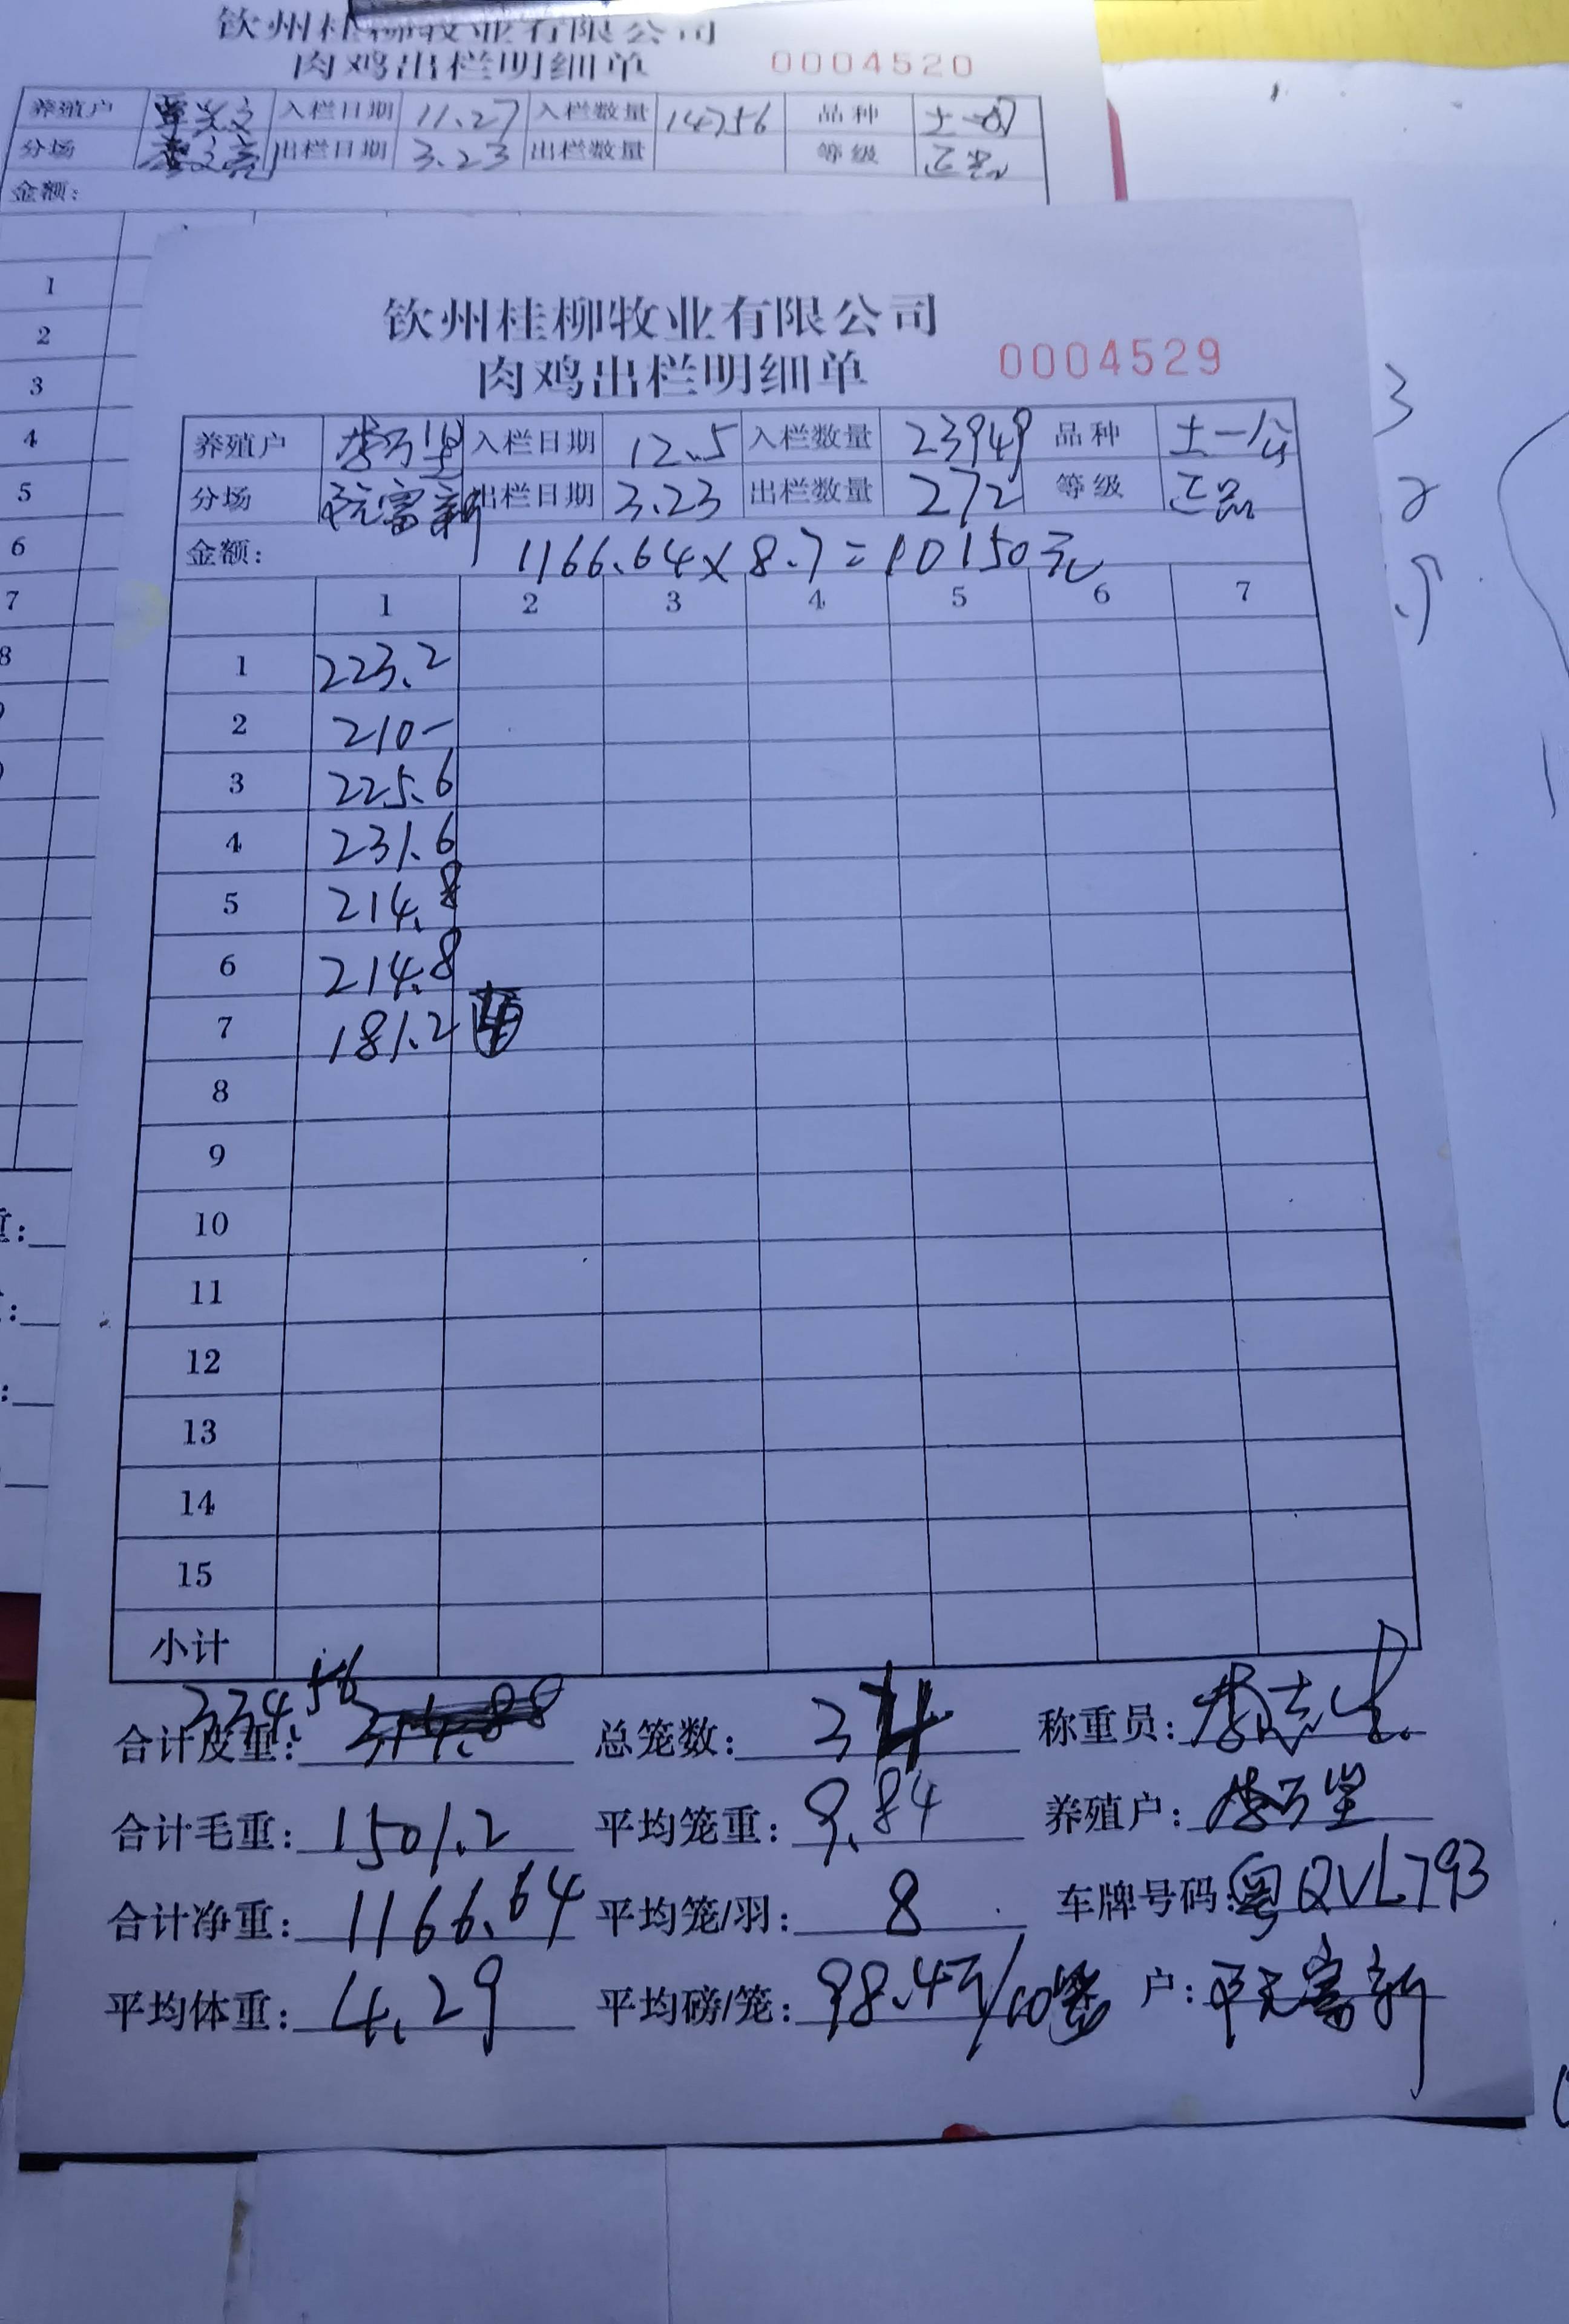 钦州桂柳牧业有限公司
肉鸡出栏明细单 0004520
养殖户 入栏日期 11.27 入栏数量 14756 品种
分场 出栏日期 3.23 出栏数量 等级 正品
金额:
1
2
3
4
5
6
7
8
钦州桂柳牧业有限公司
肉鸡出栏明细单 0004529
养殖户 李万坚 入栏日期 12.5 入栏数量 23949 品种 土一公
分场 阮富新 出栏日期 3.23 出栏数量 272 等级 正品
金额: 1166.64×8.7=10150元
1 2 3 4 5 6 7
1 223.2
2 210-
3 225.6
4 231.6
5 214.8
6 214.8
7 181.2 ④
8
9
10
11
12
13
14
15
小计
合计皮重: 334.56 总笼数: 34 称重员: 李志
合计毛重: 1501.2 平均笼重: 9.84 养殖户: 李万坚
合计净重: 1166.64 平均笼/羽: 8 车牌号码: 粤QVL793
平均体重: 4.29 平均磅/笼: 98.4斤/10笼 户: 阮富新